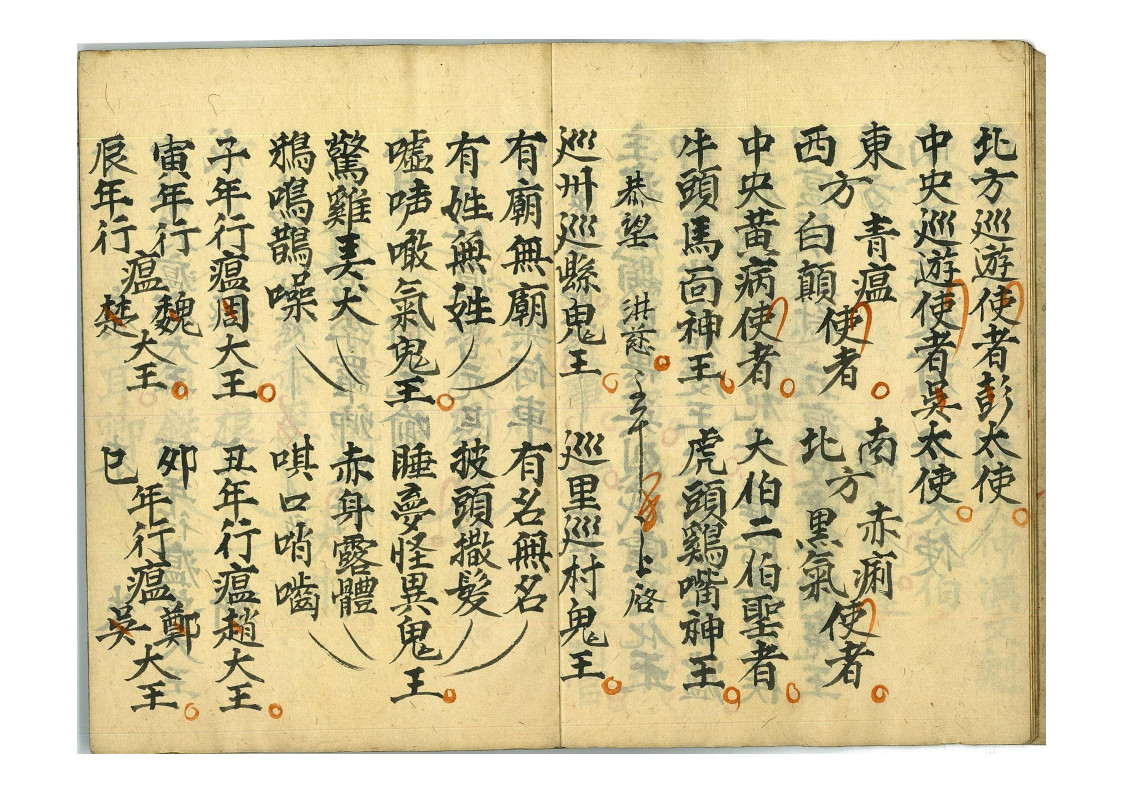 北方巡遊使者彭太使
中央巡遊使者吳太使
東方青瘟使者 南方赤痢使者
西方白顛使者 北方黑氣使者
中央黃病使者 大伯二伯聖者
牛頭馬面神王 虎頭鷄嘴神王
恭望 洪慈 上啓
巡州巡縣鬼王 巡里巡村鬼王
有廟無廟 有名無名
有姓無姓 披頭撒髮
嘘声噉氣鬼王 睡夢怪異鬼王
驚雞美犬 赤身露體
鴉鳴鵲噪 唭口哨嚙
子年行瘟周大王 丑年行瘟趙大王
寅年行瘟魏大王 卯年行瘟鄭大王
辰年行瘟楚大王 巳年行瘟吳大王